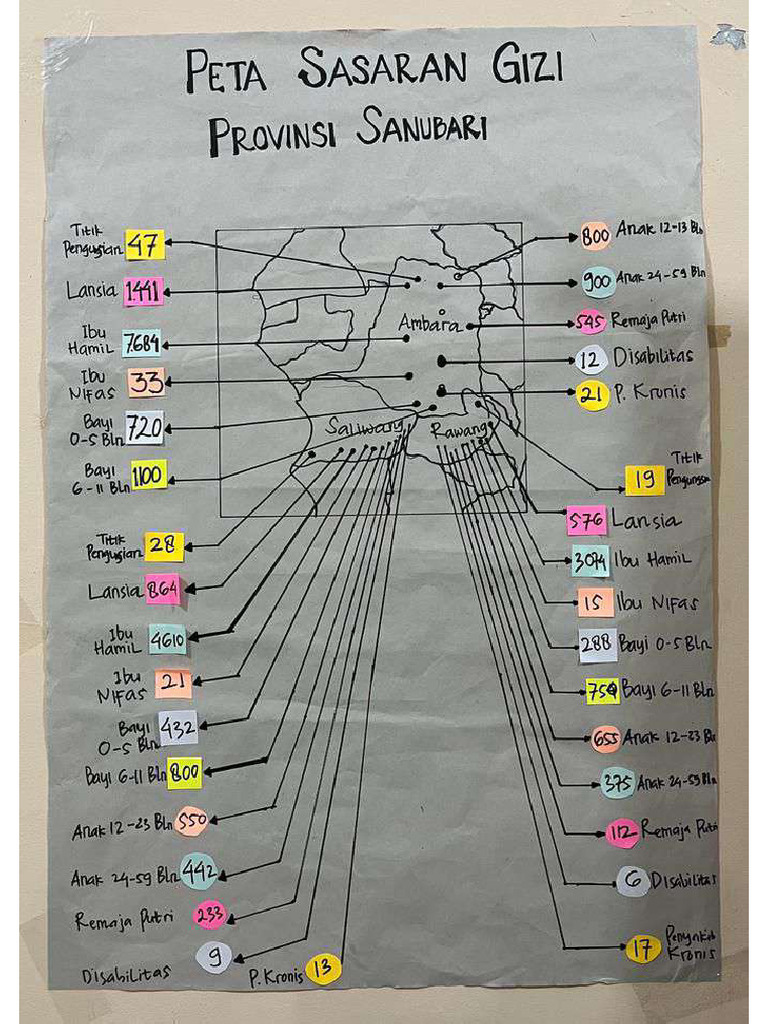 PETA SASARAN GIZI
PROVINSI SANUBARI
Titik
Pengungsian 47
Lansia 1.441
Ibu
Hamil 7.684
Ibu
NIFAS 33
Bayi
0-5 Bln 720
Bayi
6-11 Bln 1.100
800 Anak 12-13 Bln
900 Anak 24-59 Bln
545 Remaja Putri
12 Disabilitas
21 P. Kronis
Ambara
Saliwang
Rawang
Titik
Pengungsian 28
Lansia 864
Ibu
Hamil 4610
Ibu
NIFAS 21
Bayi
0-5 Bln 432
Bayi 6-11 Bln 800
Anak 12-23 Bln 550
Anak 24-59 Bln 442
Remaja Putri 233
Disabilitas 9
P. Kronis 13
19 Titik
576 Lansia
Ibu Hamil
15 Ibu Nifas
288 Bayi 0-5 Bln
Bayi 6-11 Bln
655 Anak 12-23 Bln
375 Anak 24-59 Bln
112 Remaja Putri
6 Disabilitas
17
Kronis